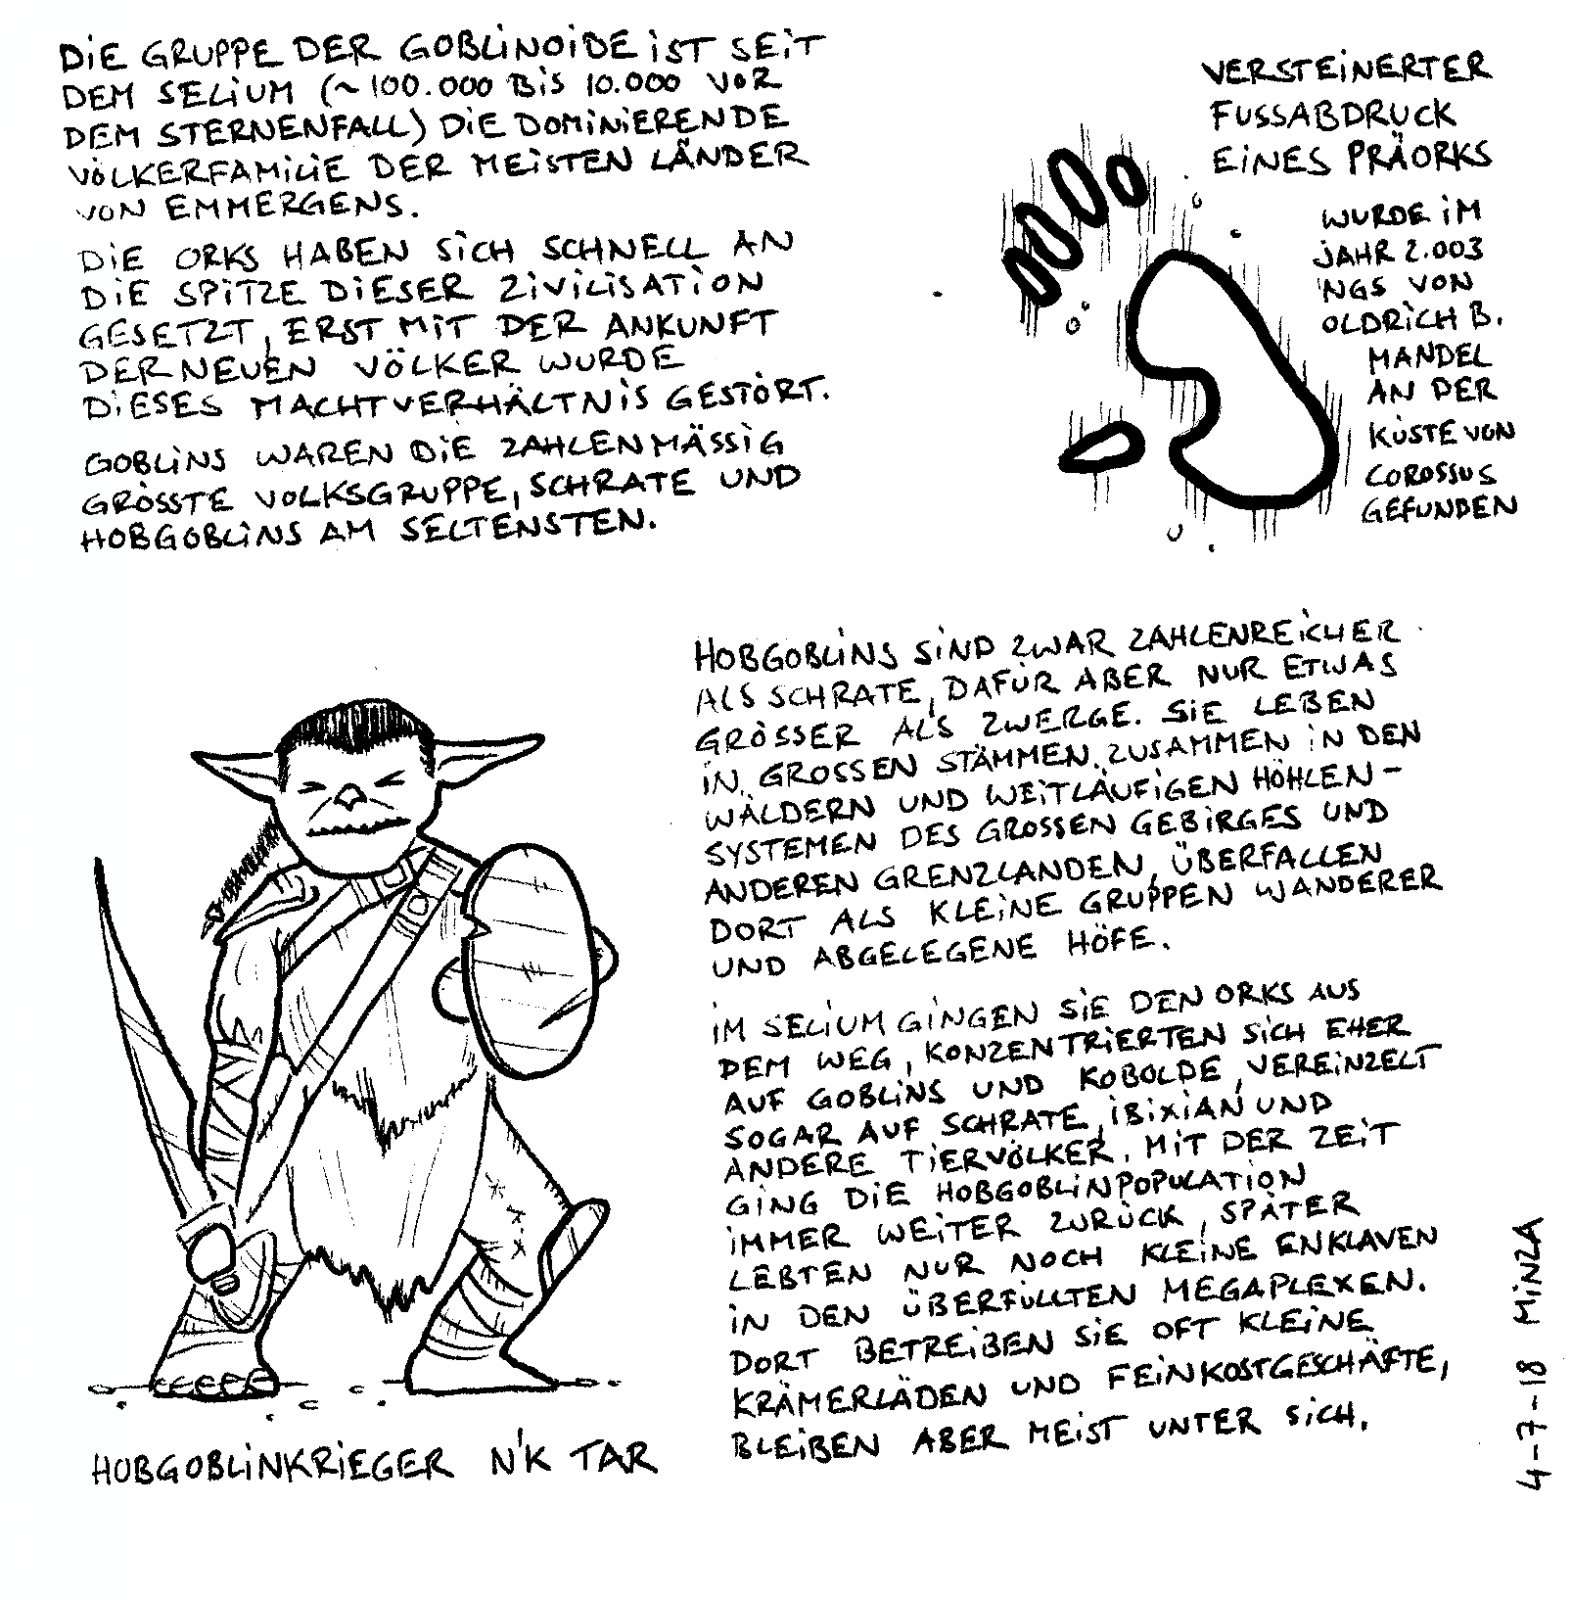 DIE GRUPPE DER GOBLINOIDE IST SEIT
DEM SELIUM (~100.000 BIS 10.000 VOR
DEM STERNENFALL) DIE DOMINIERENDE
VÖLKERFAMILIE DER MEISTEN LÄNDER
VON EMMERGENS.
DIE ORKS HABEN SICH SCHNELL AN
DIE SPITZE DIESER ZIVILISATION
GESETZT, ERST MIT DER ANKUNFT
DER NEUEN VÖLKER WURDE
DIESES MACHTVERHÄLTNIS GESTÖRT.
GOBLINS WAREN DIE ZAHLENMÄSSIG
GRÖSSTE VOLKSGRUPPE, SCHRATE UND
HOBGOBLINS AM SELTENSTEN.
VERSTEINERTER
FUSSABDRUCK
EINES PRÄORKS
WURDE IM
JAHR 2.003
'NGS VON
OLDRICH B.
MANDEL
AN DER
KÜSTE VON
COROSSUS
GEFUNDEN
HOBGOBLINS SIND ZWAR ZAHLENREICHER
ALS SCHRATE, DAFÜR ABER NUR ETWAS
GRÖSSER ALS ZWERGE. SIE LEBEN
IN GROSSEN STÄMMEN ZUSAMMEN IN DEN
WÄLDERN UND WEITLÄUFIGEN HÖHLEN-
SYSTEMEN DES GROSSEN GEBIRGES UND
ANDEREN GRENZLANDEN, ÜBERFALLEN
DORT ALS KLEINE GRUPPEN WANDERER
UND ABGELEGENE HÖFE.
IM SELIUM GINGEN SIE DEN ORKS AUS
DEM WEG, KONZENTRIERTEN SICH EHER
AUF GOBLINS UND KOBOLDE, VEREINZELT
SOGAR AUF SCHRATE, IBIXIAN UND
ANDERE TIERVÖLKER. MIT DER ZEIT
GING DIE HOBGOBLINPOPULATION
IMMER WEITER ZURÜCK, SPÄTER
LEBTEN NUR NOCH KLEINE ENKLAVEN
IN DEN ÜBERFÜLLTEN MEGAPLEXEN.
DORT BETREIBEN SIE OFT KLEINE
KRÄMERLÄDEN UND FEINKOSTGESCHÄFTE,
BLEIBEN ABER MEIST UNTER SICH.
HOBGOBLINKRIEGER N'K TAR
4-7-18 MINZA